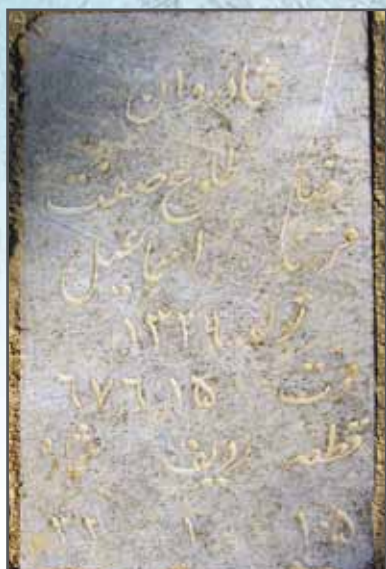 شادروان
طلوع صفت
فرزند اسماعیل
تولد ۱۳۲۹
فوت ٦٧٦٫۱۵
قطعه ردیف شماره
۱۰۵ ۱ ۳۲